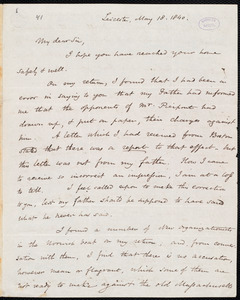 41
Leicester, May 18. 1840.
My dear Sir,
I hope you have reached your home
safely & well.
On my return, I found that I had been in
error in saying to you that my Father had informed
me that the opponents of Mr. Pierpont had
drawn up, & put on paper, their charges against
him. A letter which I had received from Boston
stated that there was a report to that effect, but
this letter was not from my father. How I came
to receive so incorrect an impression, I am at a loss
to tell. I feel called upon to make the correction
to you, lest my father should be supposed to have said
what he never has said.
I found a number of New organizationists
in the
on my return; and from conver-
sation with them, I find that there is no accusation,
however mean or flagrant, which some of them are
not ready to make against the old Massachusetts